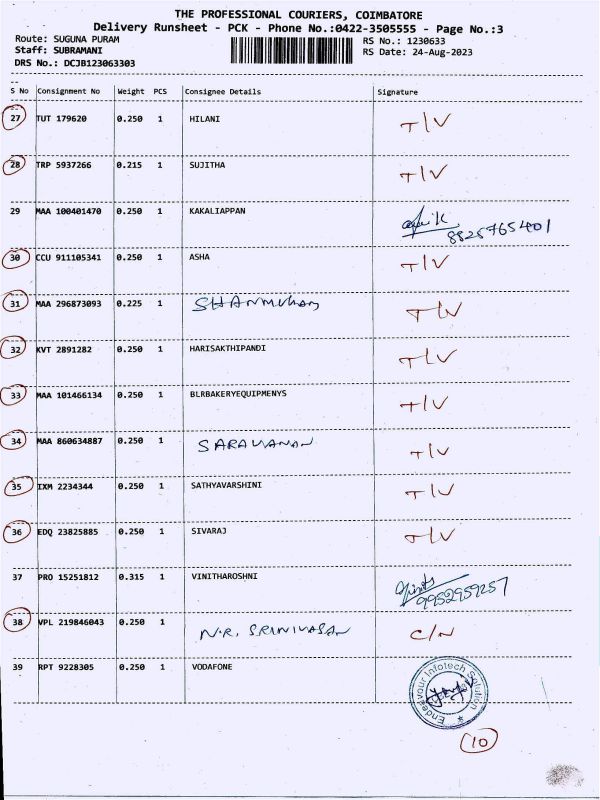 THE PROFESSIONAL COURIERS, COIMBATORE
Delivery Runsheet - PCK - Phone No.:0422-3505555 - Page No.:3
Route: SUGUNA PURAM
RS No.: 1230633
Staff: SUBRAMANI
RS Date: 24-Aug-2023
DRS No.: DCJB123063303
S No Consignment No Weight PCS Consignee Details Signature
27 TUT 179620 0.250 1 HILANI T/V
28 TRP 5937266 0.215 1 SUJITHA T/V
29 MAA 100401470 0.250 1 KAKALIAPPAN
8825765401
30 CCU 911105341 0.250 1 ASHA T/V
31 MAA 296873093 0.225 1 SHANMUHAM T/V
32 KVT 2891282 0.250 1 HARISAKTHIPANDI T/V
33 MAA 101466134 0.250 1 BLRBAKERYEQUIPMENYS T/V
34 MAA 860634887 0.250 1 SARAVANAN T/V
35 IXM 2234344 0.250 1 SATHYAVARSHINI T/V
36 EDQ 23825885 0.250 1 SIVARAJ T/V
37 PRO 15251812 0.315 1 VINITHAROSHNI
9952959257
38 VPL 219846043 0.250 1 N.R. SRINIVASAN C/N
39 RPT 9228305 0.250 1 VODAFONE
Endeavour Infotech Solution
10